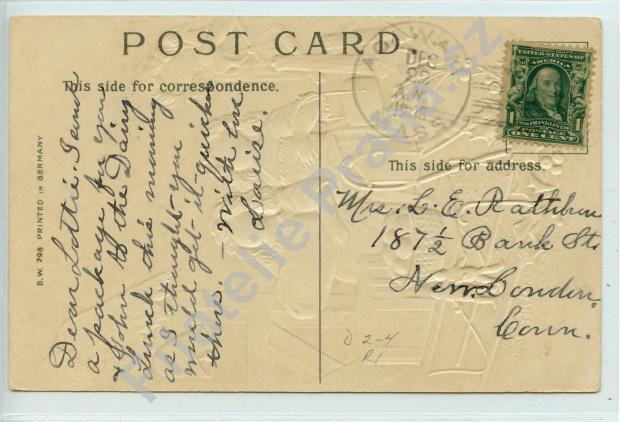 POST CARD
This side for correspondence.
Dear Lottie. I send
a package for you
& John to the Dairy
Lunch this morning
as I thought you
would get it quicker
there. — With love
Louise.
B.W. 298 PRINTED IN GERMANY
DEC
22
MASS
UNITED STATES OF AMERICA
FRANKLIN
POSTAGE
1 ONE CENT 1
This side for address.
Mrs. L. E. Rathbun
187½ Bank St.
New London
Conn.
D 2-4
R1
Filatelie Praha.cz